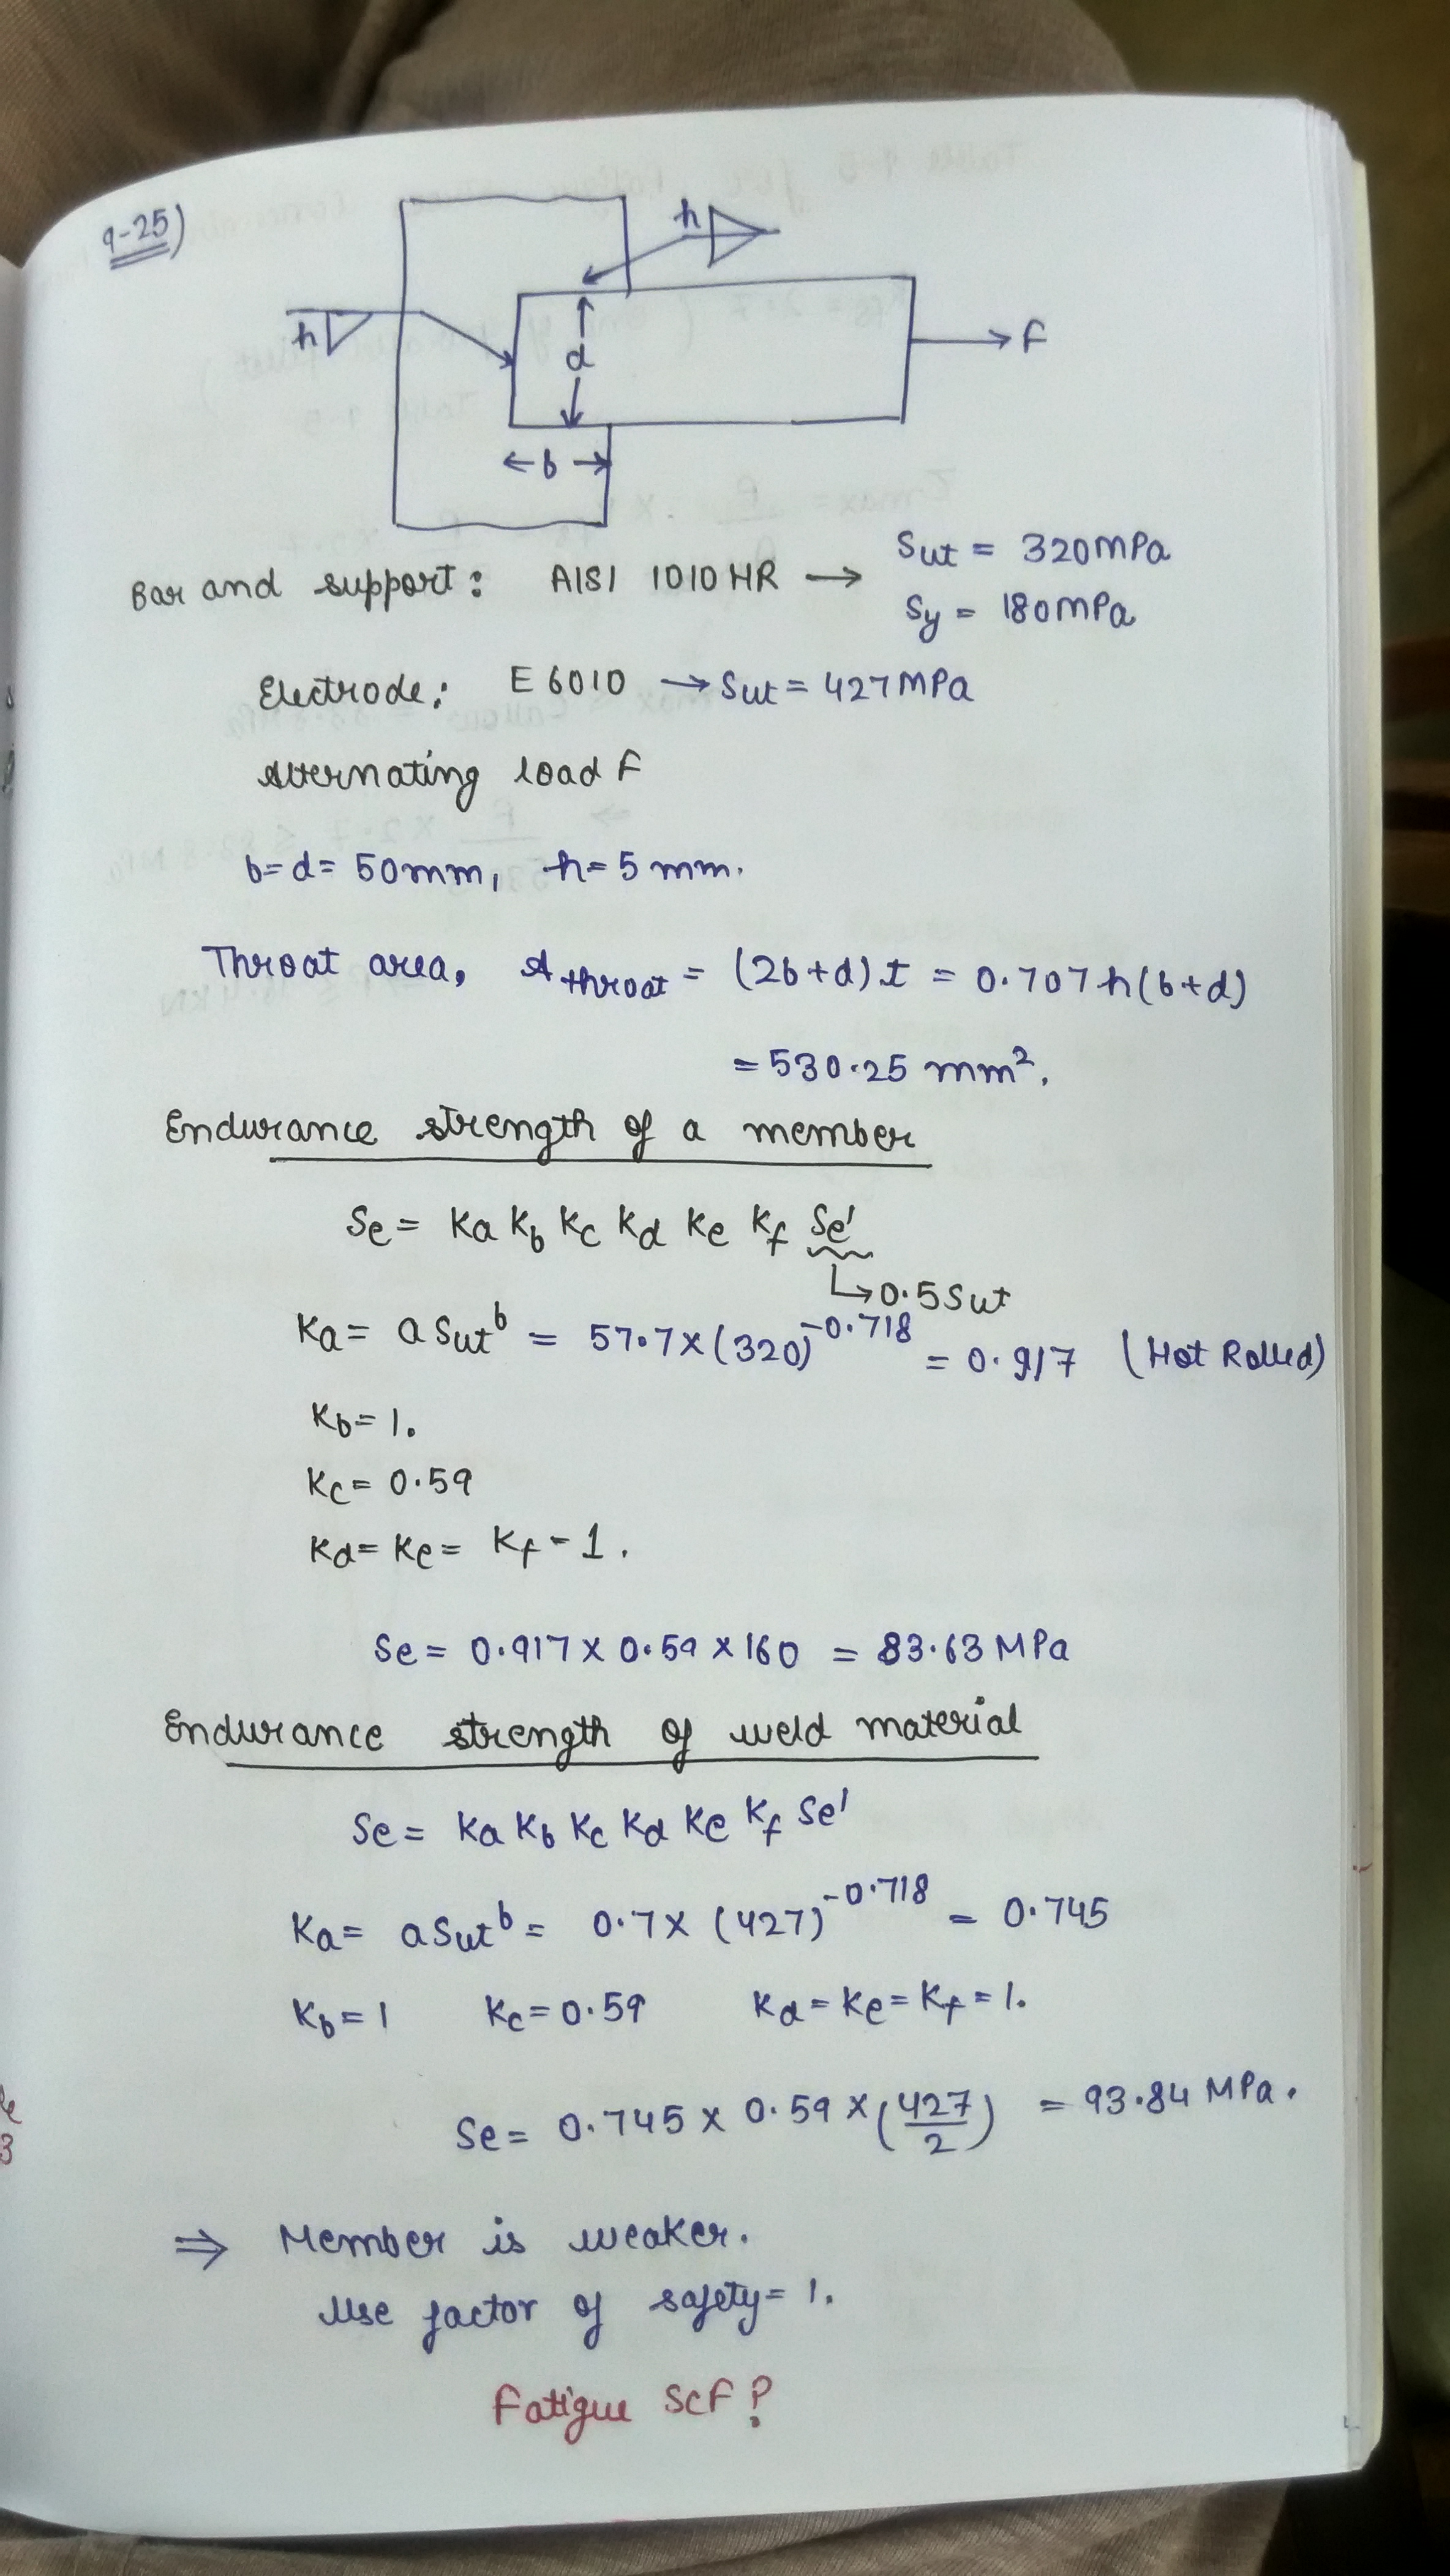 9-25)
h
h
d
F
b
Bar and support: AISI 1010 HR → Sut = 320 MPa
Sy = 180 MPa
Electrode: E 6010 → Sut = 427 MPa
Alternating load F
b = d = 50mm, h = 5 mm.
Throat area, Athroat = (2b+d) t = 0.707 h (b+d)
= 530.25 mm².
Endurance strength of a member
Se = Ka Kb Kc Kd Ke Kf Se'
↳ 0.5 Sut
Ka = a Sut^b = 57.7 x (320)^-0.718 = 0.917 (Hot Rolled)
Kb = 1.
Kc = 0.59
Kd = Ke = Kf = 1.
Se = 0.917 x 0.59 x 160 = 83.63 MPa
Endurance strength of weld material
Se = Ka Kb Kc Kd Ke Kf Se'
Ka = a Sut^b = 0.7 x (427)^-0.718 = 0.745
Kb = 1 Kc = 0.59 Kd = Ke = Kf = 1.
Se = 0.745 x 0.59 x (427/2) = 93.84 MPa.
⇒ Member is weaker.
Use factor of safety = 1.
Fatigue SCF?